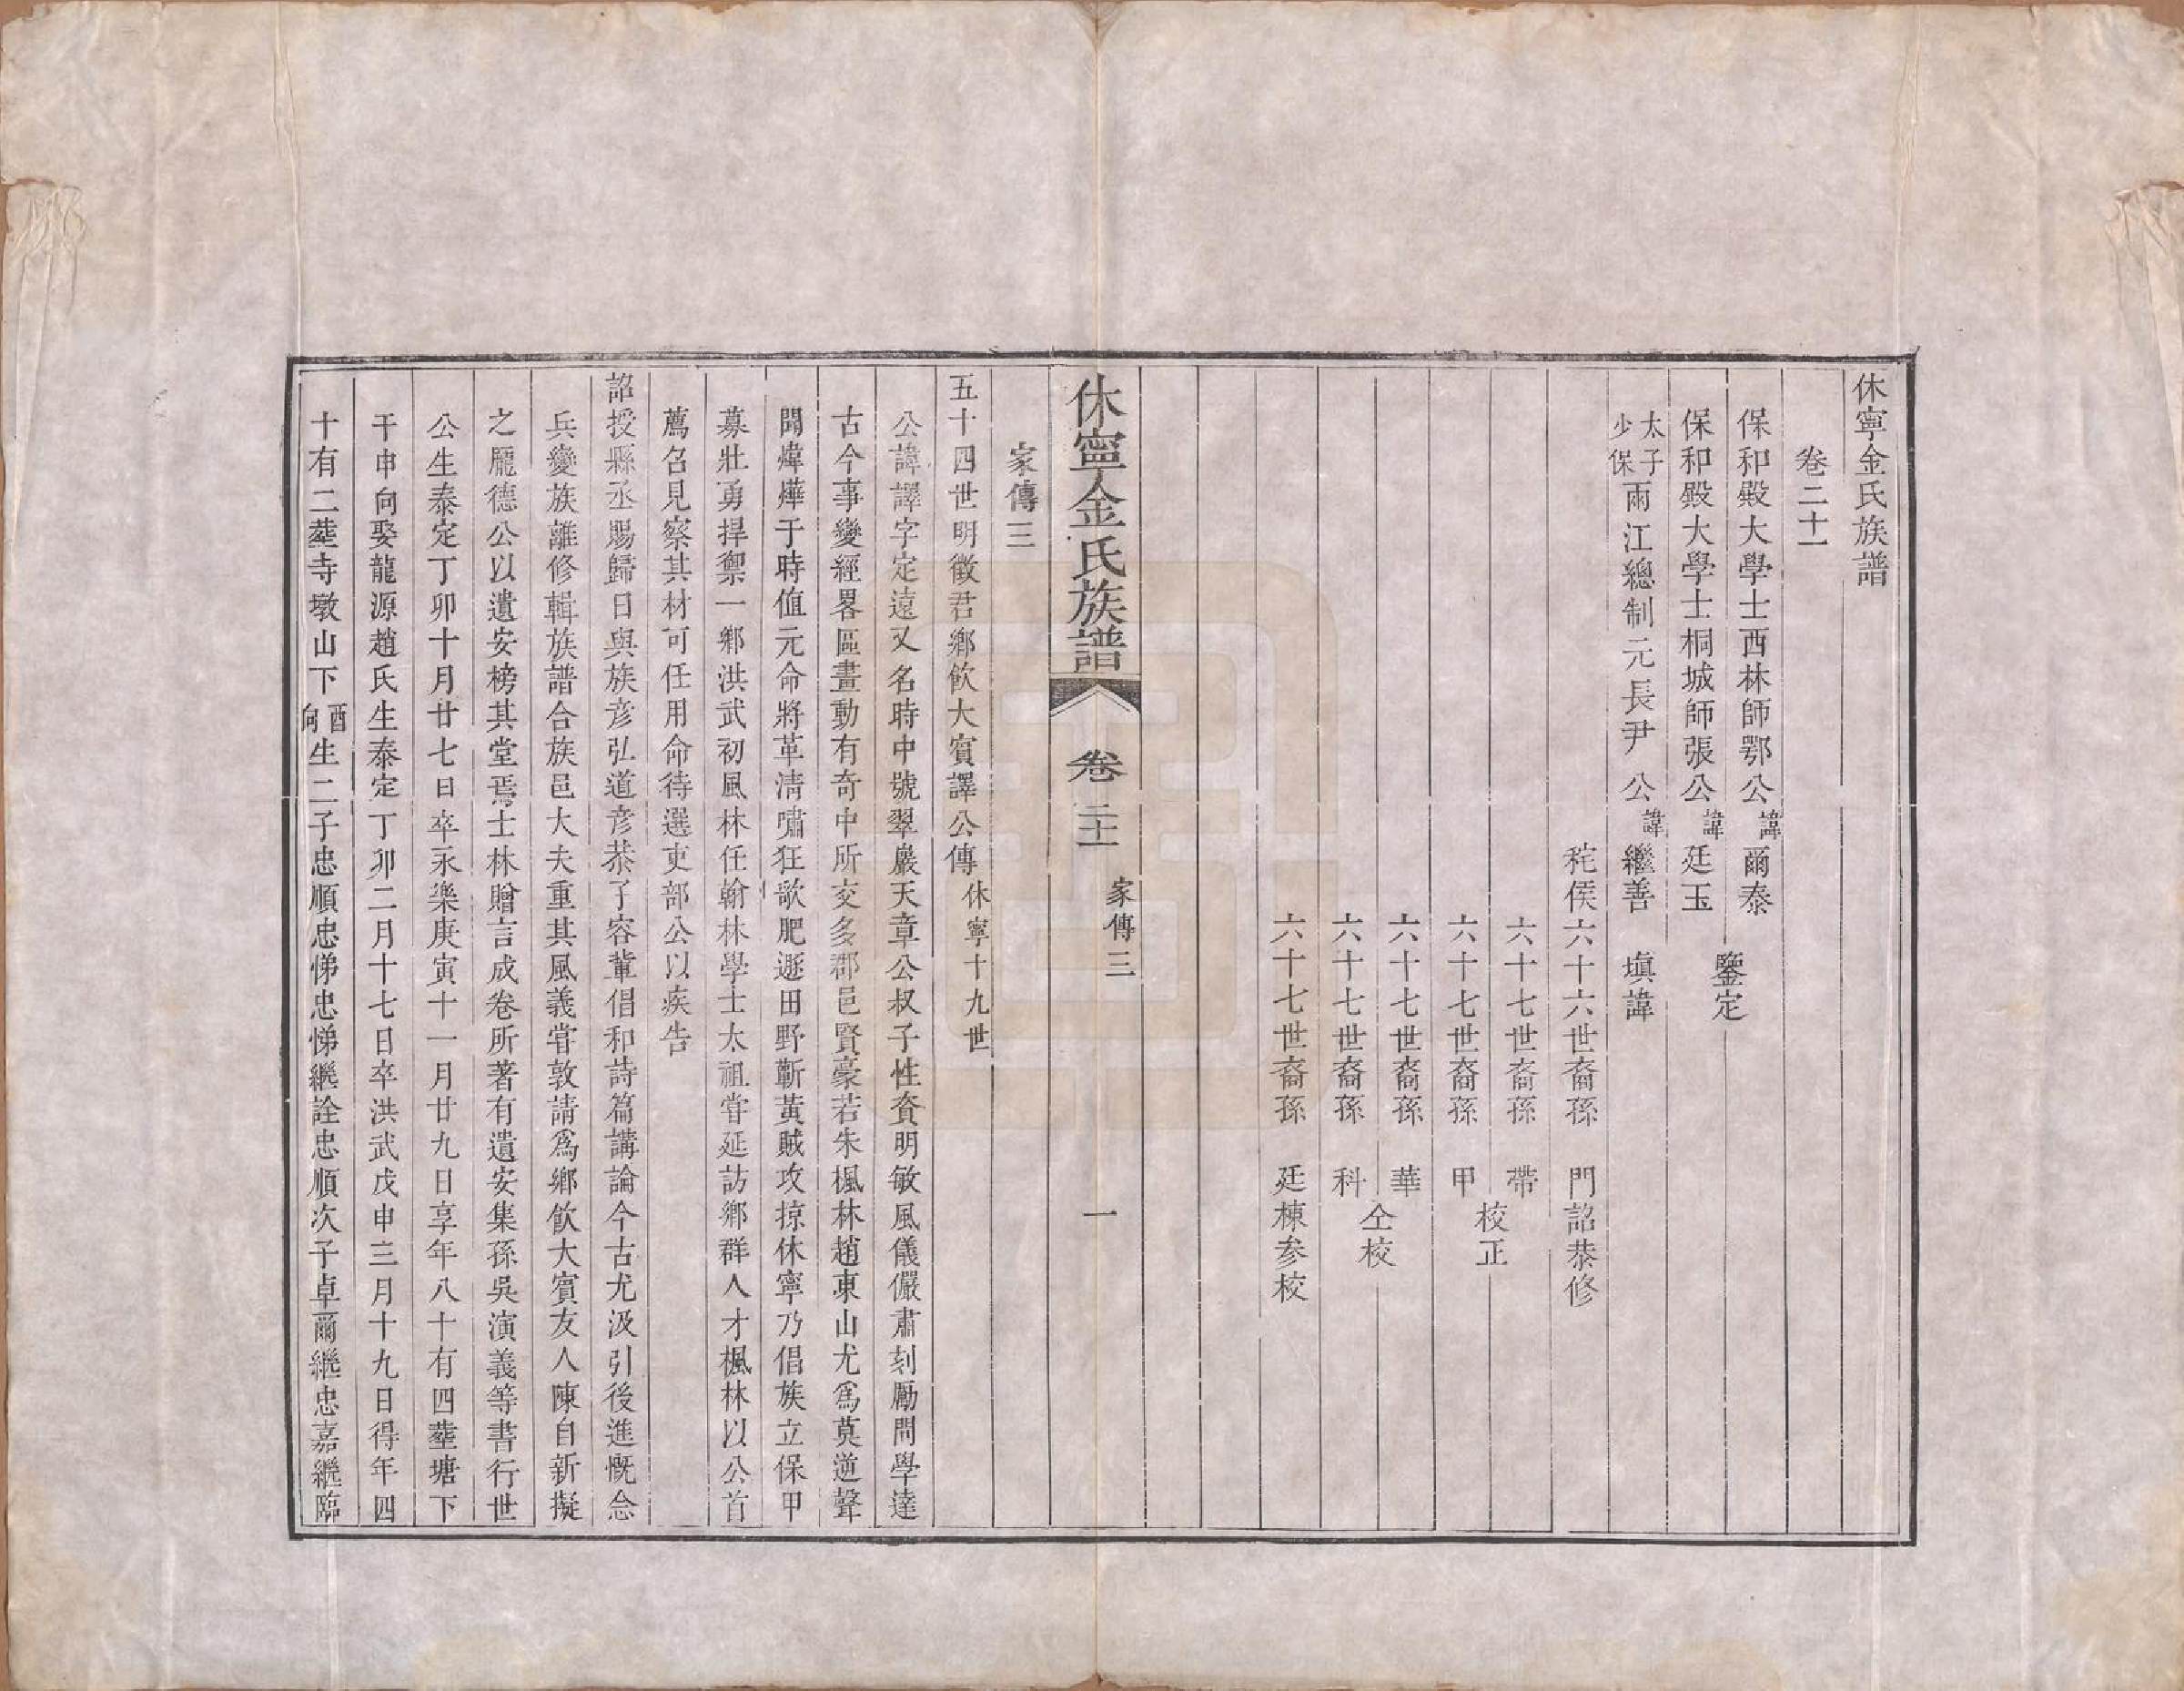 休寧金氏族譜
卷二十一
保和殿大學士西林師鄂公諱爾泰
鑒定
保和殿大學士桐城師張公諱廷玉
太子少保兩江總制元長尹公諱繼善 塡諱
秺侯六十六世裔孫 門詔恭修
六十七世裔孫 帶
校正
六十七世裔孫 甲
六十七世裔孫 華
仝校
六十七世裔孫 科
六十七世裔孫 廷棟參校
休寧金氏族譜 卷二十一 家傳三 一
家傳三
五十四世明徵君鄉飲大賓譯公傳 休寧十九世
公諱譯字定遠又名時中號翠巖天章公叔子性資明敏風儀儼肅刻勵問學達
古今事變經畧區畫動有奇中所交多郡邑賢豪若朱楓林趙東山尤爲莫逆聲
聞煒燁于時值元命將革清嘯狂歌肥遯田野蘄黃賊攻掠休寧乃倡族立保甲
募壯勇捍禦一鄉洪武初風林任翰林學士太祖甞延訪鄉群人才楓林以公首
薦名見察其材可任用命待選吏部公以疾告
詔授縣丞賜歸日與族彥弘道彥恭了容輩倡和詩篇講論今古尤汲引後進慨念
兵變族離修輯族譜合族邑大夫重其風義甞敦請爲鄉飲大賓友人陳自新擬
之龎德公以遺安榜其堂焉士林贈言成卷所著有遺安集孫吳演義等書行世
公生泰定丁卯十月廿七日卒永樂庚寅十一月廿九日享年八十有四塟塘下
干申向娶龍源趙氏生泰定丁卯二月十七日卒洪武戊申三月十九日得年四
十有二塟寺墩山下酉向生二子忠順忠悌忠悌繼詮忠順次子卓爾繼忠嘉繼臨